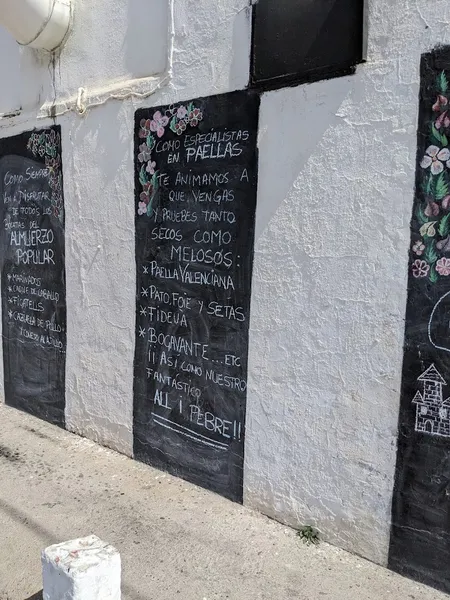 COMO SIEMPRE
VEN A DISFRUTAR
DE TODOS LOS
DEL
ALMUERZO
POPULAR
* MARINADOS
* CARNE DE CABALLO
* FIGATELLS
* CAZUELA DE POLLO
Y CONEJO AL AJILLO
COMO ESPECIALISTAS
EN PAELLAS
TE ANIMAMOS A
QUE VENGAS
Y PRUEBES TANTO
SECOS COMO
MELOSOS:
* PAELLA VALENCIANA
* PATO, FOIE Y SETAS
* FIDEUA
* BOGAVANTE... ETC
¡¡ ASÍ COMO NUESTRO
FANTÁSTICO
ALL i PEBRE!!